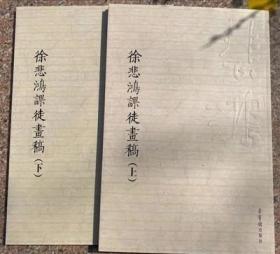 徐悲鴻課徒畫稿(下)
徐悲鴻課徒畫稿(上)